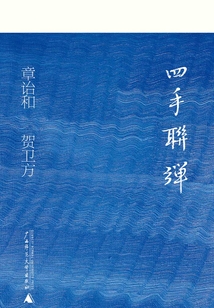 四手聯弹
章诒和
贺卫方
广西师范大学出版社